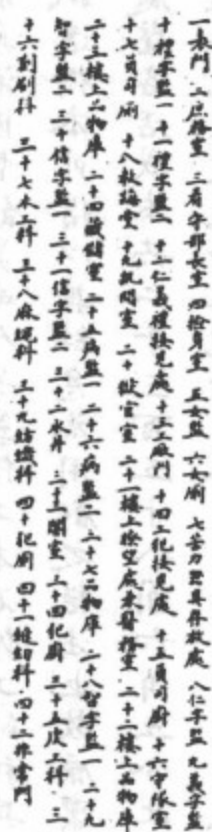 一表門 二庶務室 三看守部長室 四檢身室 五女監 六女廁 七苦力器具存放處 八仁字監 九義字監
十禮字監一 十一禮字監二 十二仁義禮接見處 十三工廠門 十四工犯接見處 十五員司廚 十六守候室
十七員司廁 十八教誨堂 十九訊問室 二十獄官室 二十一樓上瞭望處東醫務室 二十二樓上品物庫
二十三樓上品物庫 二十四藏儲室 二十五病監一 二十六病監二 二十七品物庫 二十八智字監一 二十九
智字監二 三十信字監一 三十一信字監二 三十二水井 三十三閱室 三十四犯廚 三十五皮工科 三
十六割刷科 三十七木工科 三十八麻繩科 三十九紡織科 四十犯廁 四十一縫紉科 四十二非常門